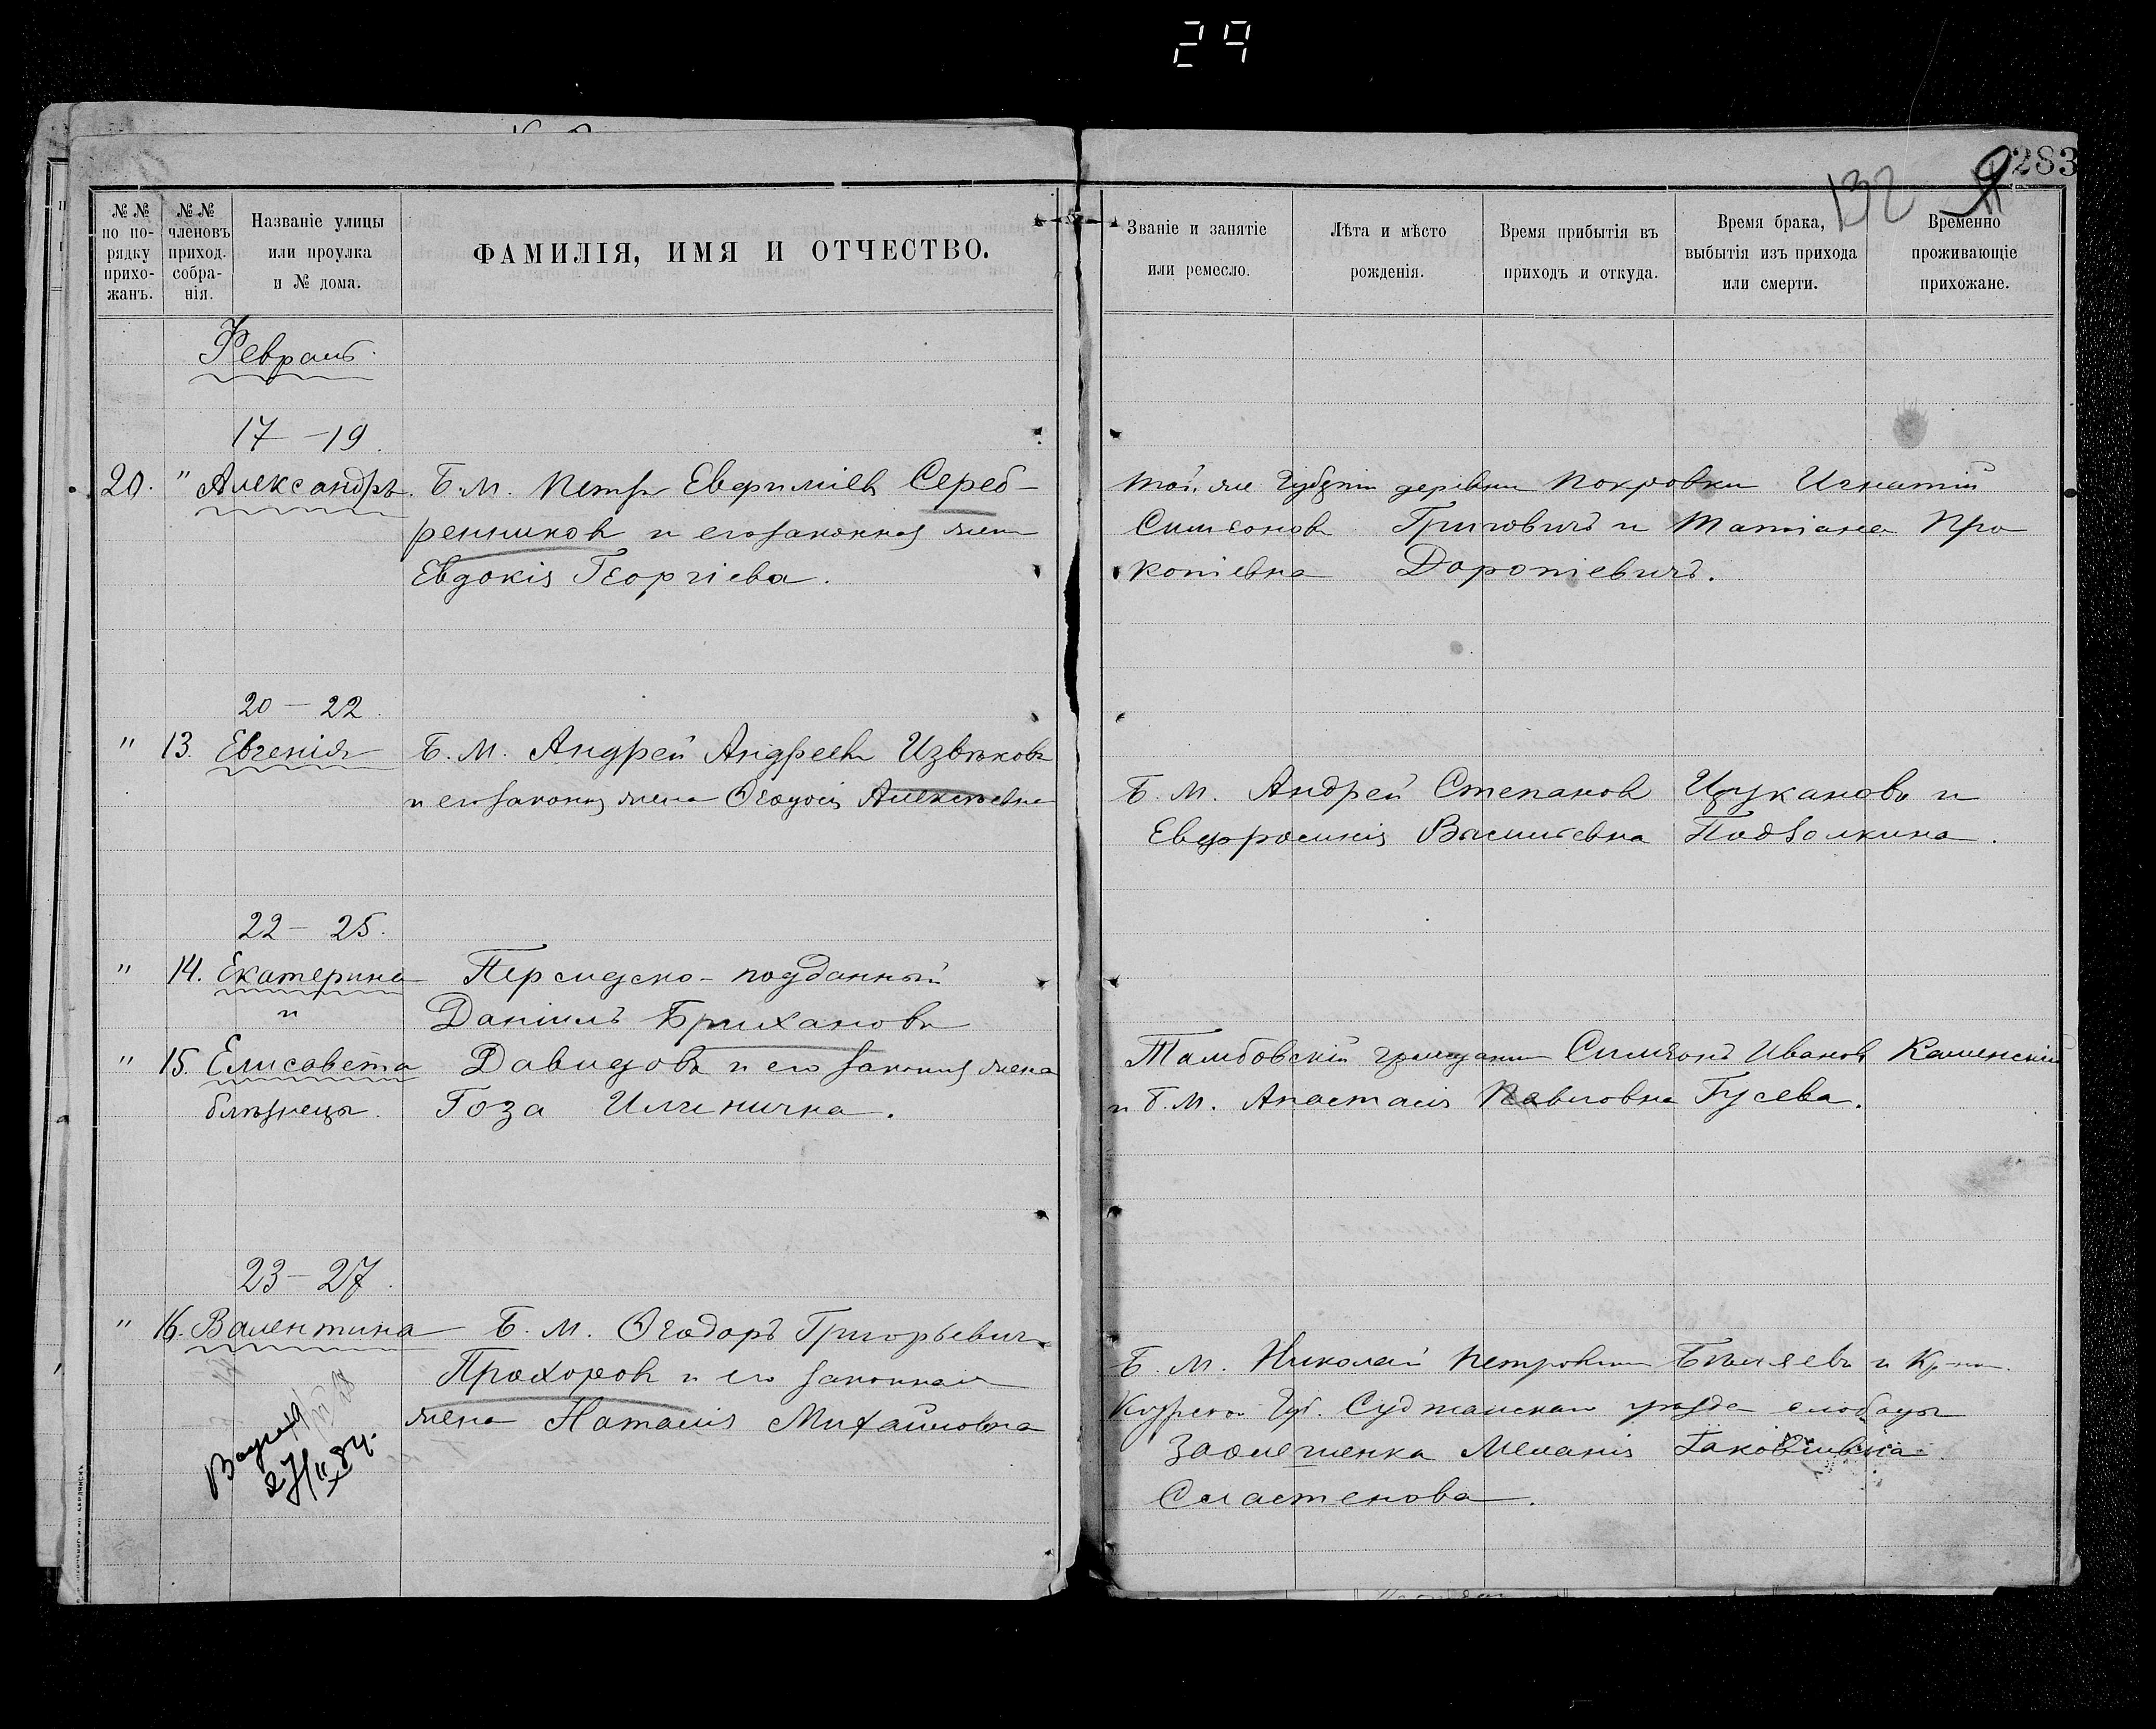 29
283
132
9
№№ по порядку прихожанъ.
№№ членовъ приход. собранія.
Названіе улицы или проулка и № дома.
ФАМИЛІЯ, ИМЯ И ОТЧЕСТВО.
Званіе и занятіе или ремесло.
Лѣта и мѣсто рожденія.
Время прибытія въ приходъ и откуда.
Время брака, выбытія изъ прихода или смерти.
Временно проживающіе прихожане.
Февраль.
17 – 19.
20. " Александръ. Б. М. Петръ Евфиміевъ Сереб-
ренниковъ и его законная жена
Евдокія Георгіева.
той же Губерніи деревни Покровки Игнатій
Симеоновъ Григовичъ и Татіана Про
копіевна Доропіевичъ.
20 – 22.
" 13. Евгенія Б. М. Андрей Андреевъ Извѣковъ
и его законная жена Ѳеодосія Алексѣевна
Б. М. Андрей Степановъ Цукановъ и
Евфросинія Васильевна Подволкина.
22 – 25.
" 14. Екатерина Персидско-подданный
и Даніилъ Брихановъ
" 15. Елисавета Давидовъ и его законная жена
близнецы. Гоза Илиничка.
Тамбовскій гражданинъ Симеонъ Ивановъ Каменскій
и Б. М. Анастасія Павловна Гусева.
23 – 27.
" 16. Валентина Б. М. Ѳеодоръ Григорьевичъ
Прохоровъ и его законная
жена Наталія Михайловна
Б. М. Николай Петровичъ Бѣляевъ и Кр-ка.
Курской Губ. Суджанскаго уѣзда слободы
Заолешенка Меланія Іаковлевна
Сластенова.
27/II 84.